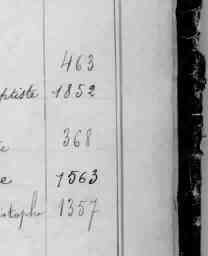 463
ptiste 1852
368
e
e 1563
stophe 1357